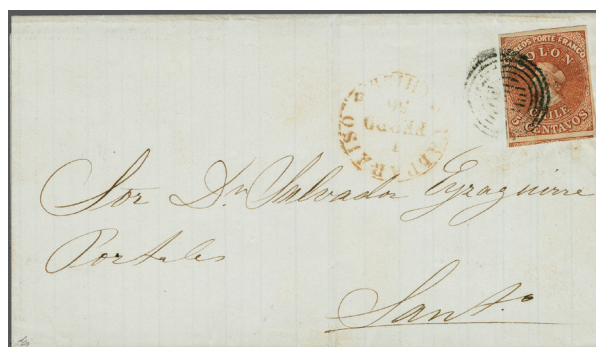 CORREOS PORTE FRANCO
COLON
CHILE
5 CENTAVOS
VALPARAISO
CHILE
1
FEBRO
56
Sor Dn Salvador Eyzaguirre
Portales
Santo